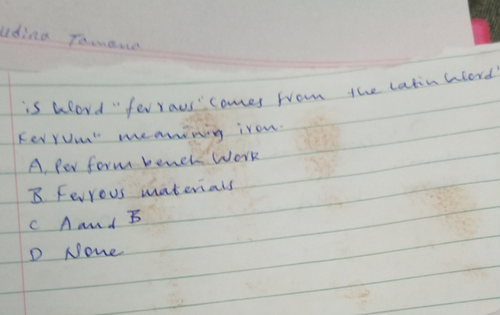 udina Tamana
is word "ferrous" comes from the Latin word"
Ferrum" meaning iron.
A, Perform bench work
B Ferrous materials
C A and B
D None